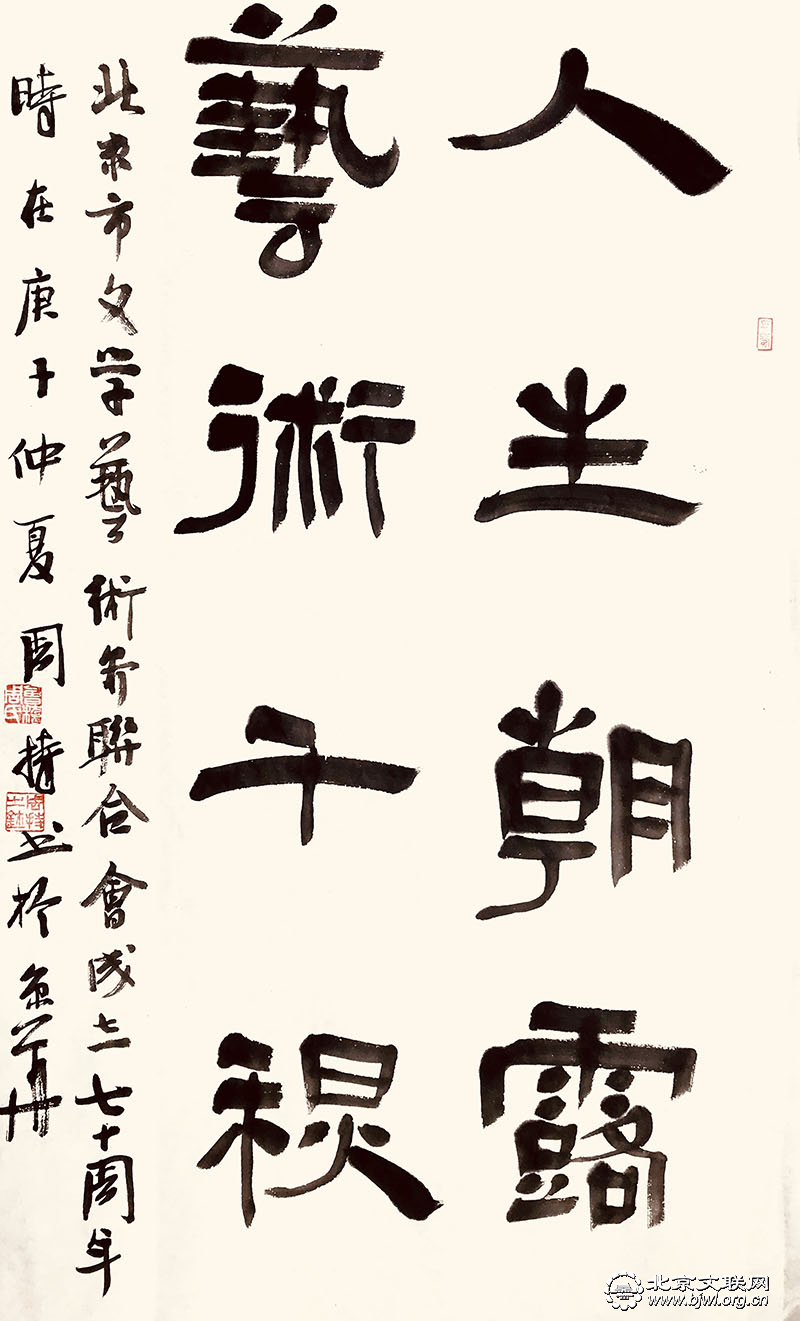 人生朝露
藝術千秋
北京市文学藝術界聯合會成立七十周年
時在庚子仲夏周持书於京華
北京文联网
www.bjwl.org.cn